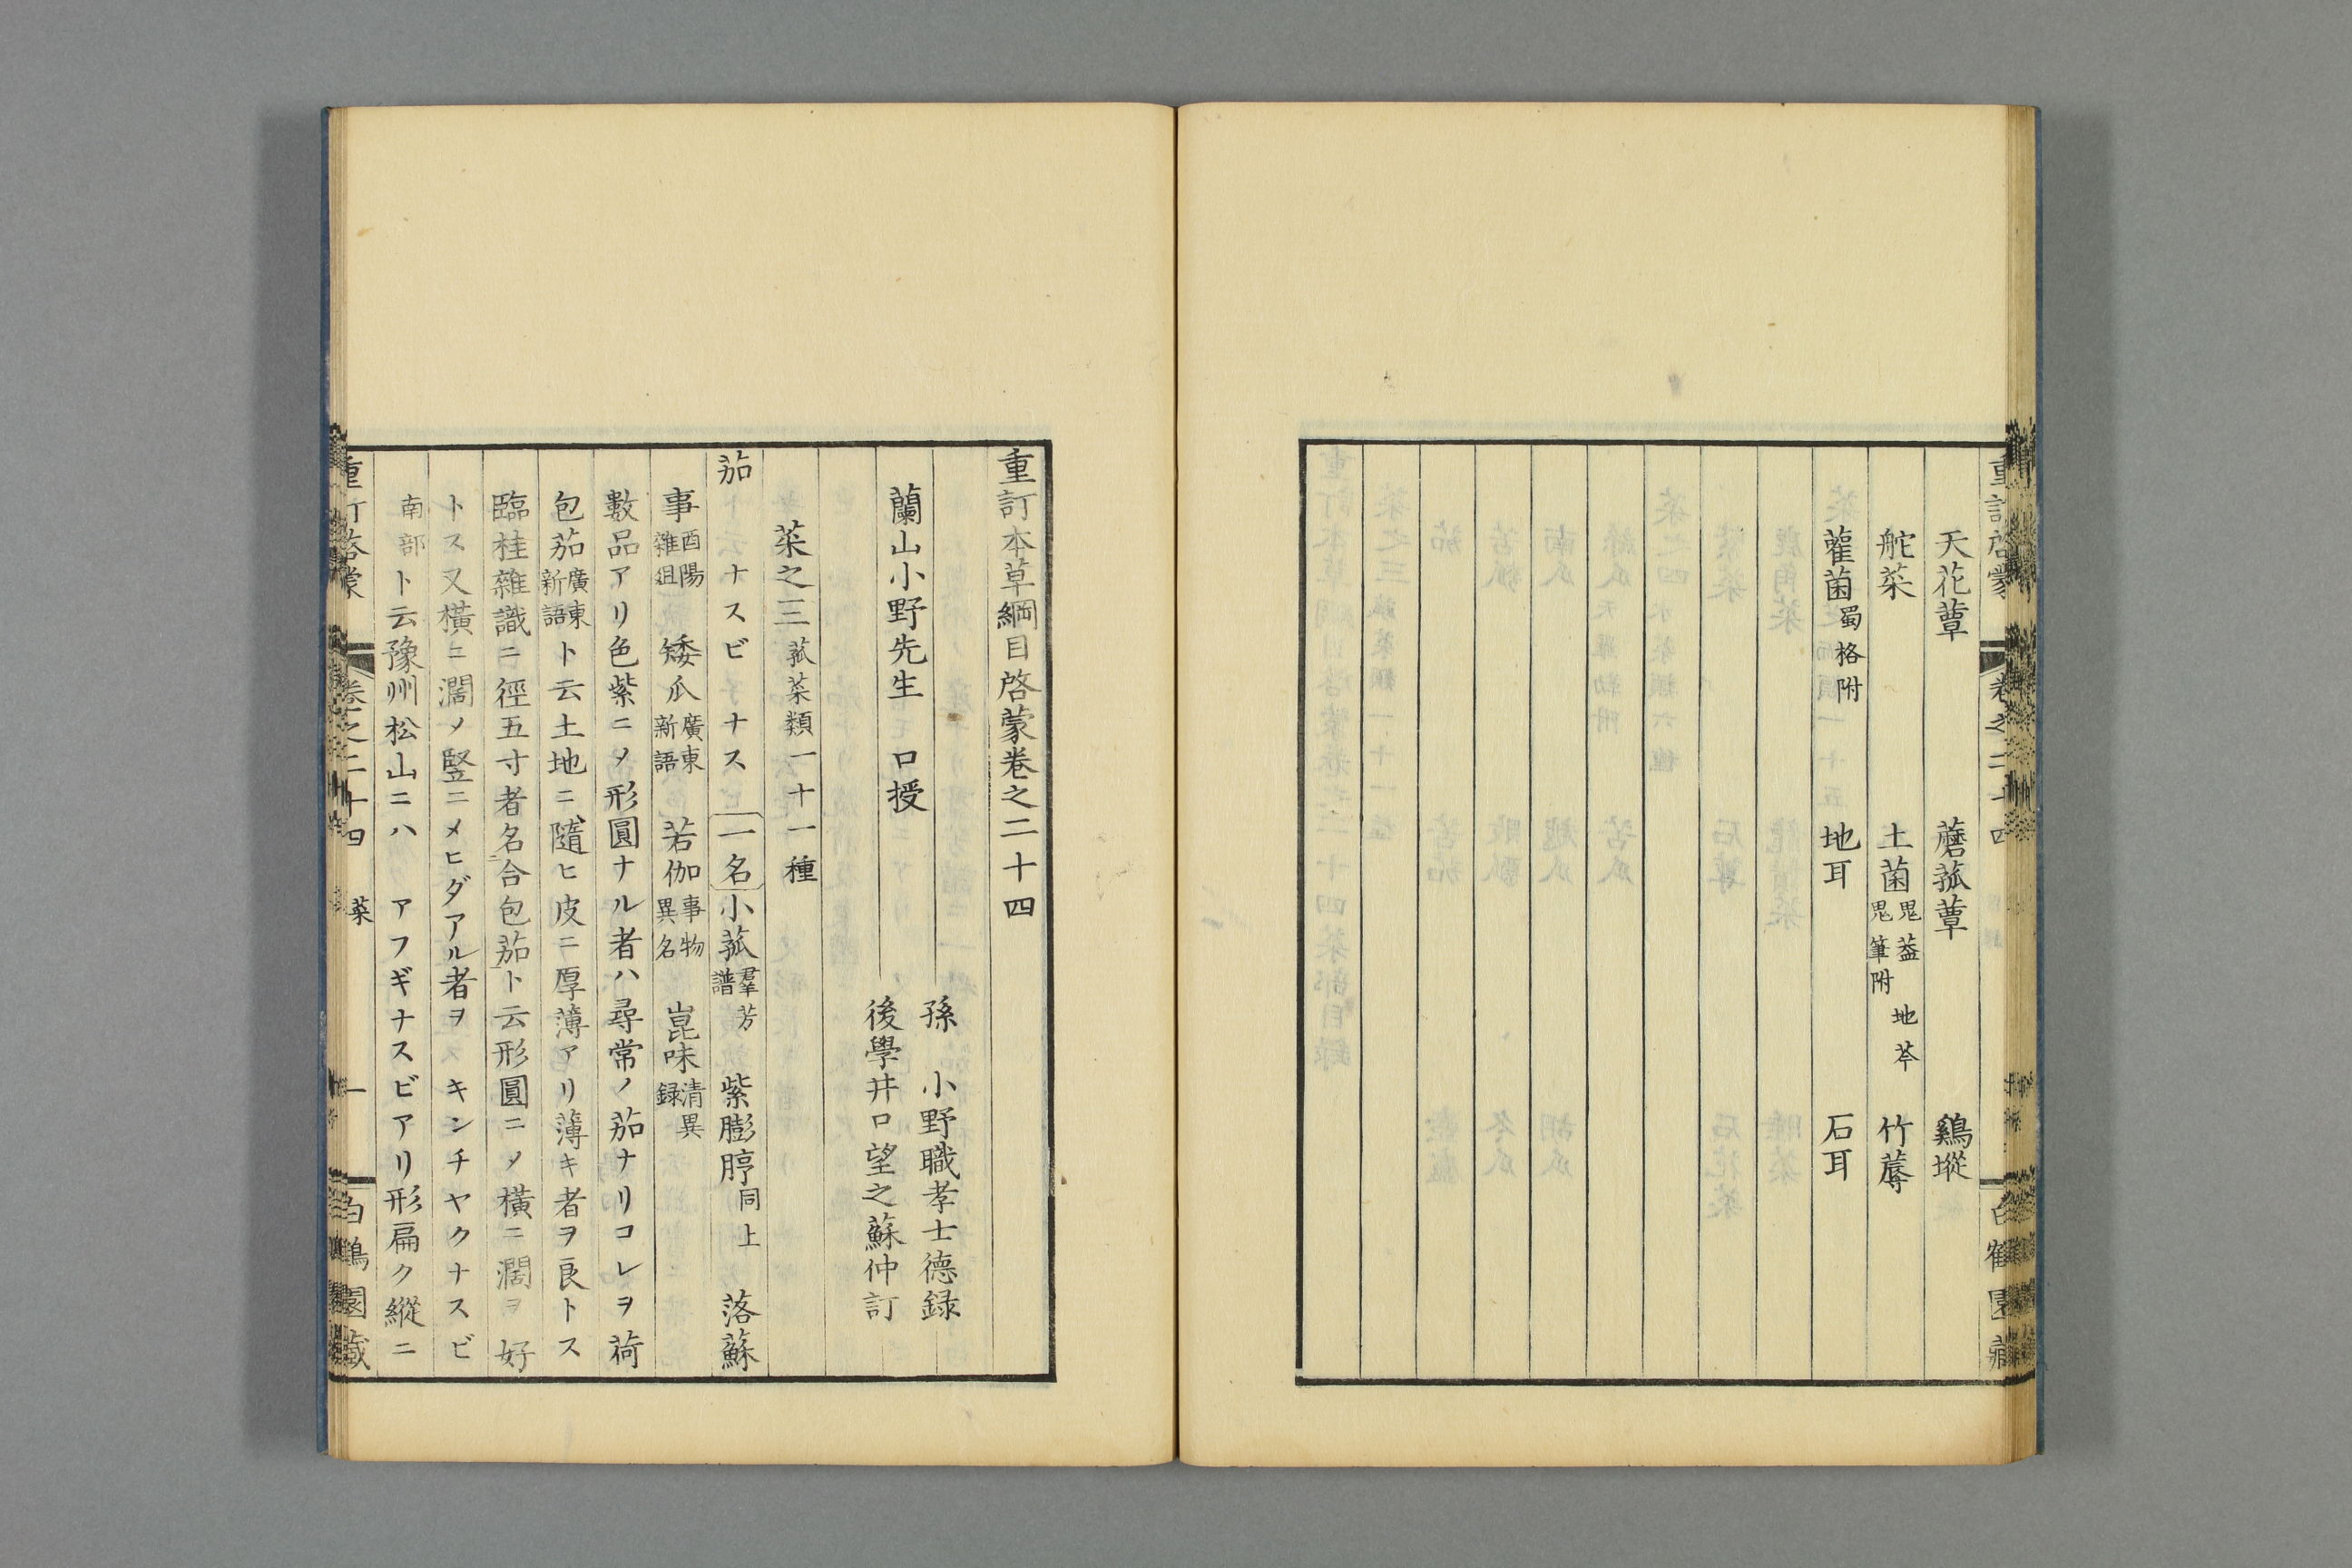 天花蕈　蘑菰蕈　鷄㙡
舵菜　土菌 鬼葢 地芩 鬼筆附　竹蓐
雚菌 蜀格附　地耳　石耳
重訂本草綱目啓蒙巻之二十四
孫　小野職孝士德録
蘭山小野先生　口授
後學井口望之蘇仲訂
菜之三 蓏菜類一十一種
茄　ナスビ　ナス　一名小菰 羣芳譜　紫膨脝 同上　落蘇
事 酉陽雜俎　矮瓜 廣東新語　若伽 事物異名　崑味 清異録
數品アリ色紫ニ〆形圓ナル者ハ尋常ノ茄ナリコレヲ荷
包茄 廣東新語 ト云土地ニ隨ヒ皮ニ厚薄アリ薄キ者ヲ良トス
臨桂雜識ニ徑五寸者名合包茄ト云形圓ニ〆橫ニ濶ヲ好
トス又橫ニ濶〆竪ニメヒダアル者ヲ　キンチヤクナスビ
南部 ト云豫州松山ニハ　アフギナスビアリ形扁ク縱ニ
重訂啓蒙　卷之二十四　菜　一　白鶴園藏